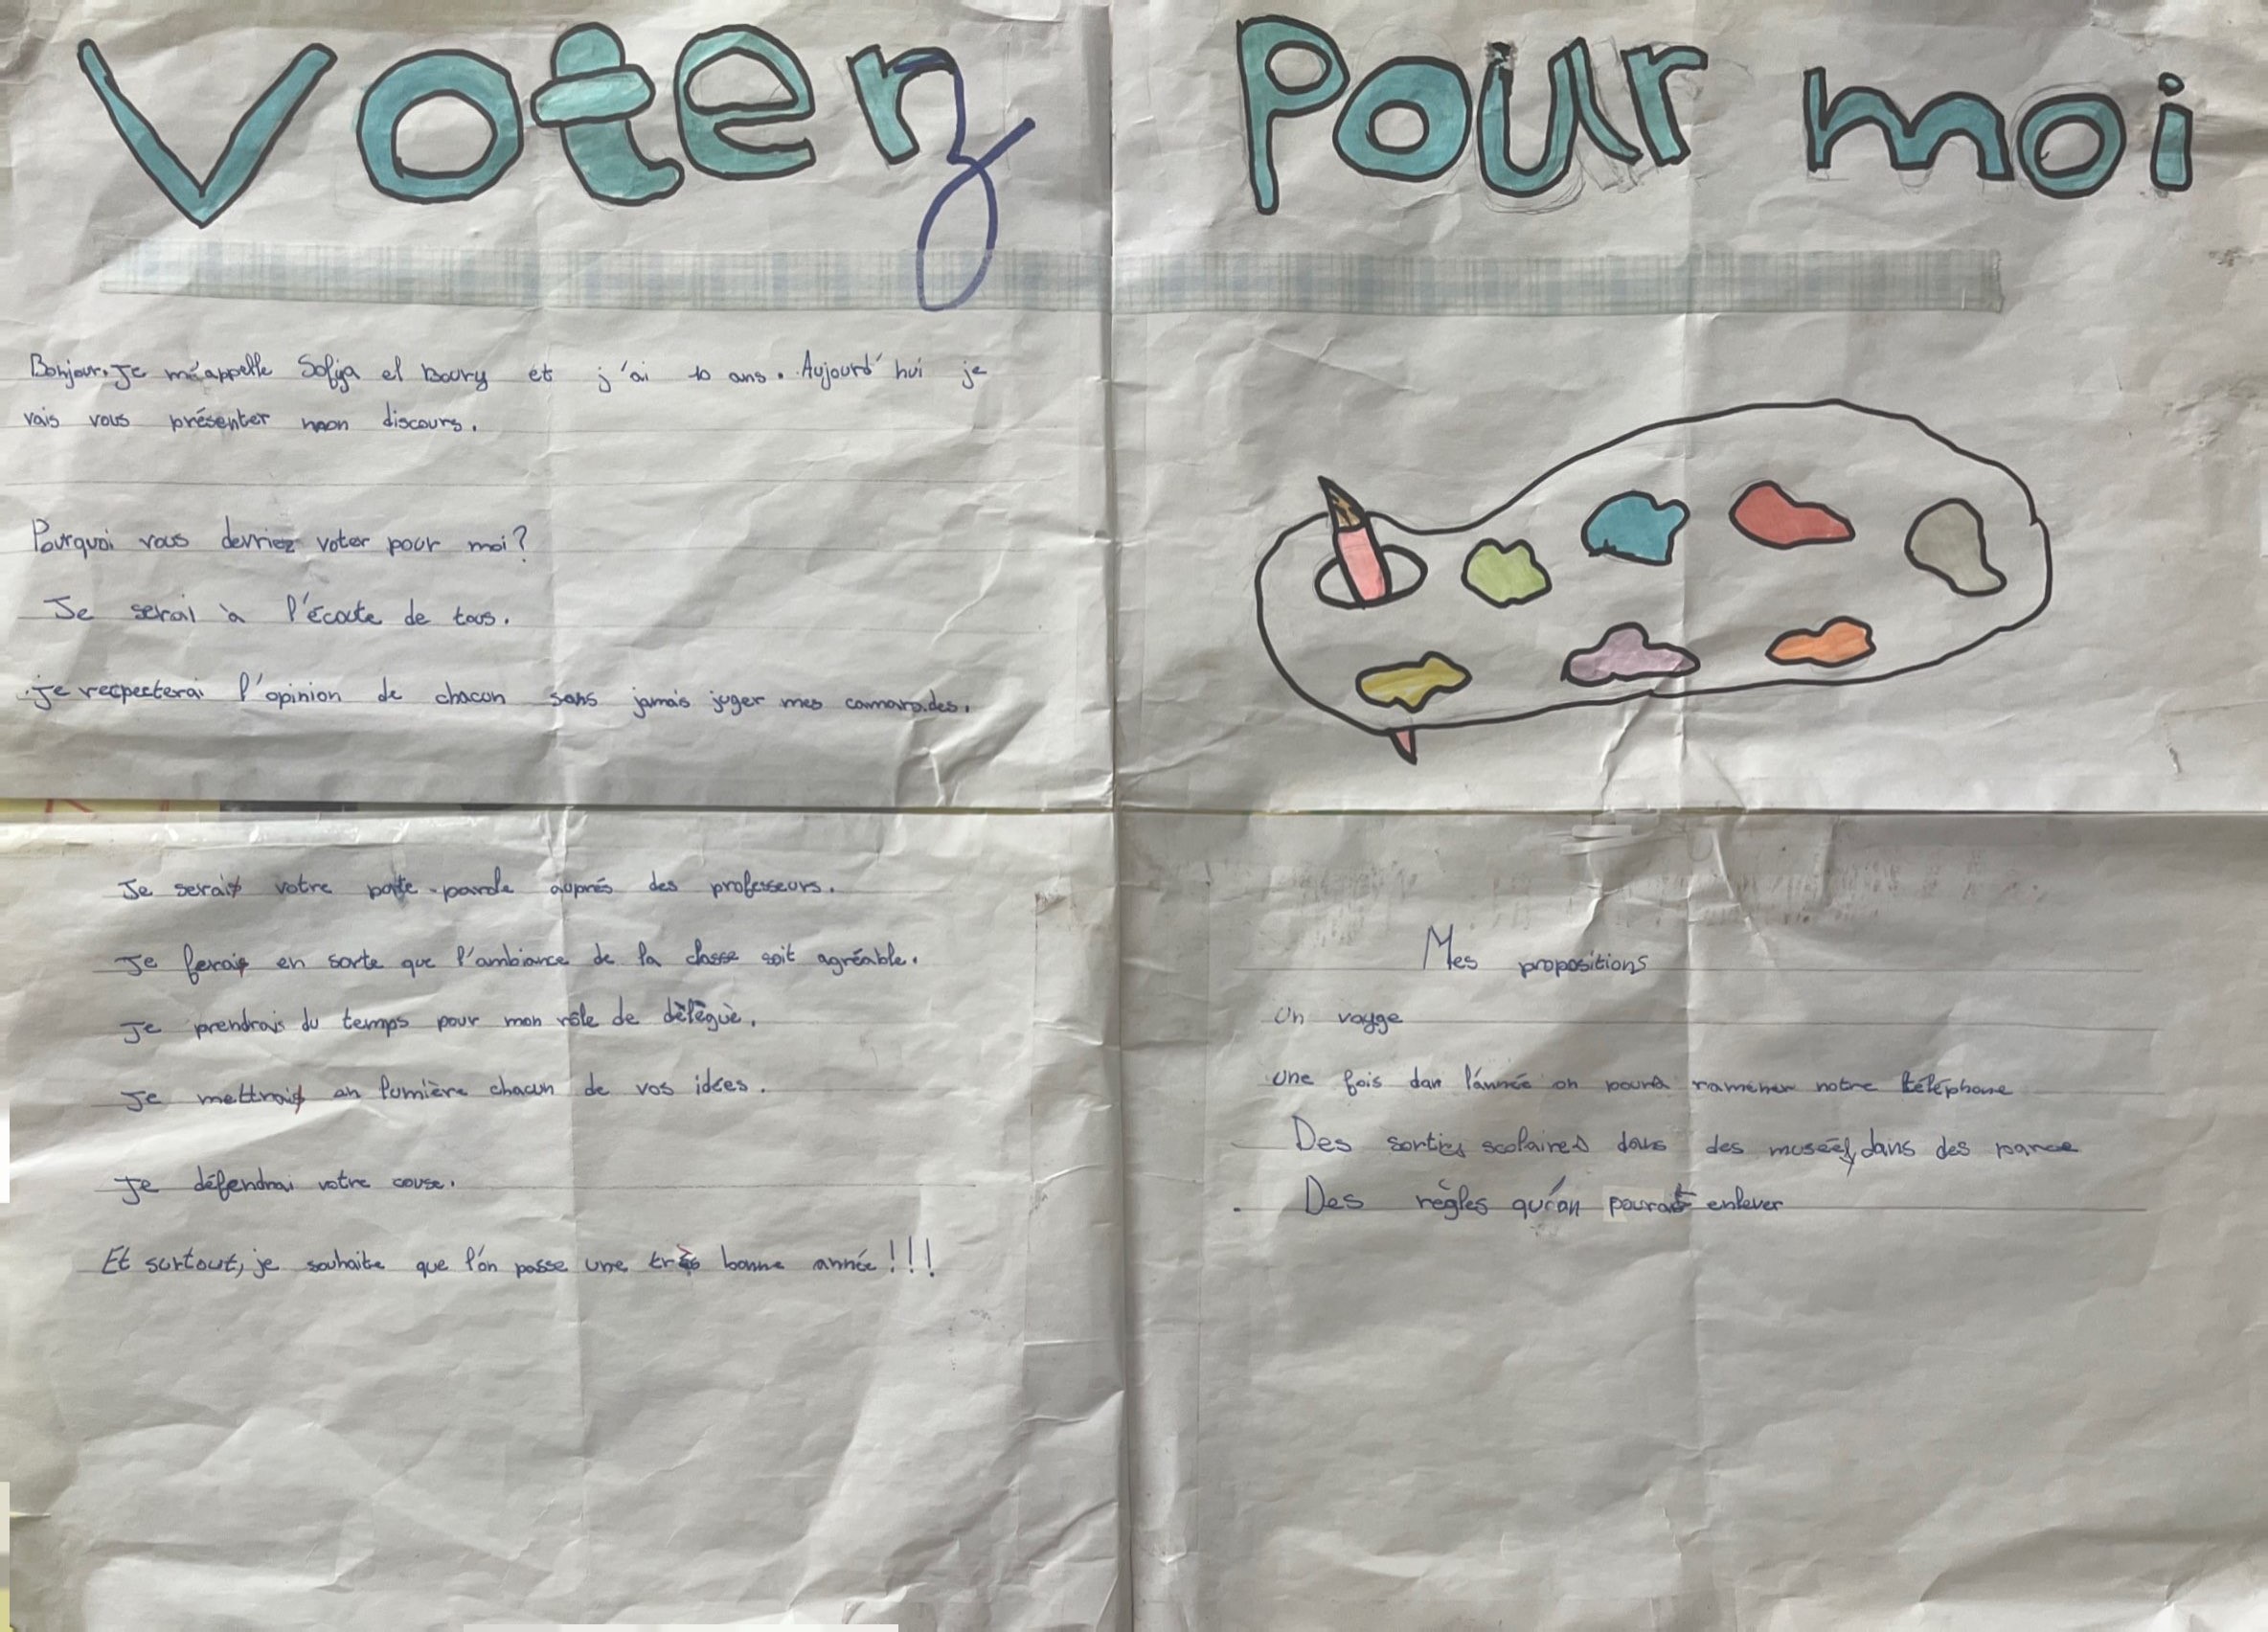 Votez Pour moi
Bonjour. Je m'appelle Sofiya el Boury et j'ai 10 ans. Aujourd'hui je
vais vous présenter mon discours.
Pourquoi vous devriez voter pour moi?
Je serai à l'écoute de tous.
je respecterai l'opinion de chacun sans jamais juger mes camarades.
Je serai votre porte-parole auprés des professeurs.
Je ferai en sorte que l'ambiance de la classe soit agréable.
Je prendrais du temps pour mon rôle de délégué.
Je mettrai en lumière chacun de vos idées.
Je défendrai votre cause.
Et surtout, je souhaite que l'on passe une très bonne année!!!
Mes propositions
Un voyge
Une fois dan l'année on poura ramener notre téléphone
Des sorties scolaires dans des musées, dans des
. Des règles qu'on pourait enlever